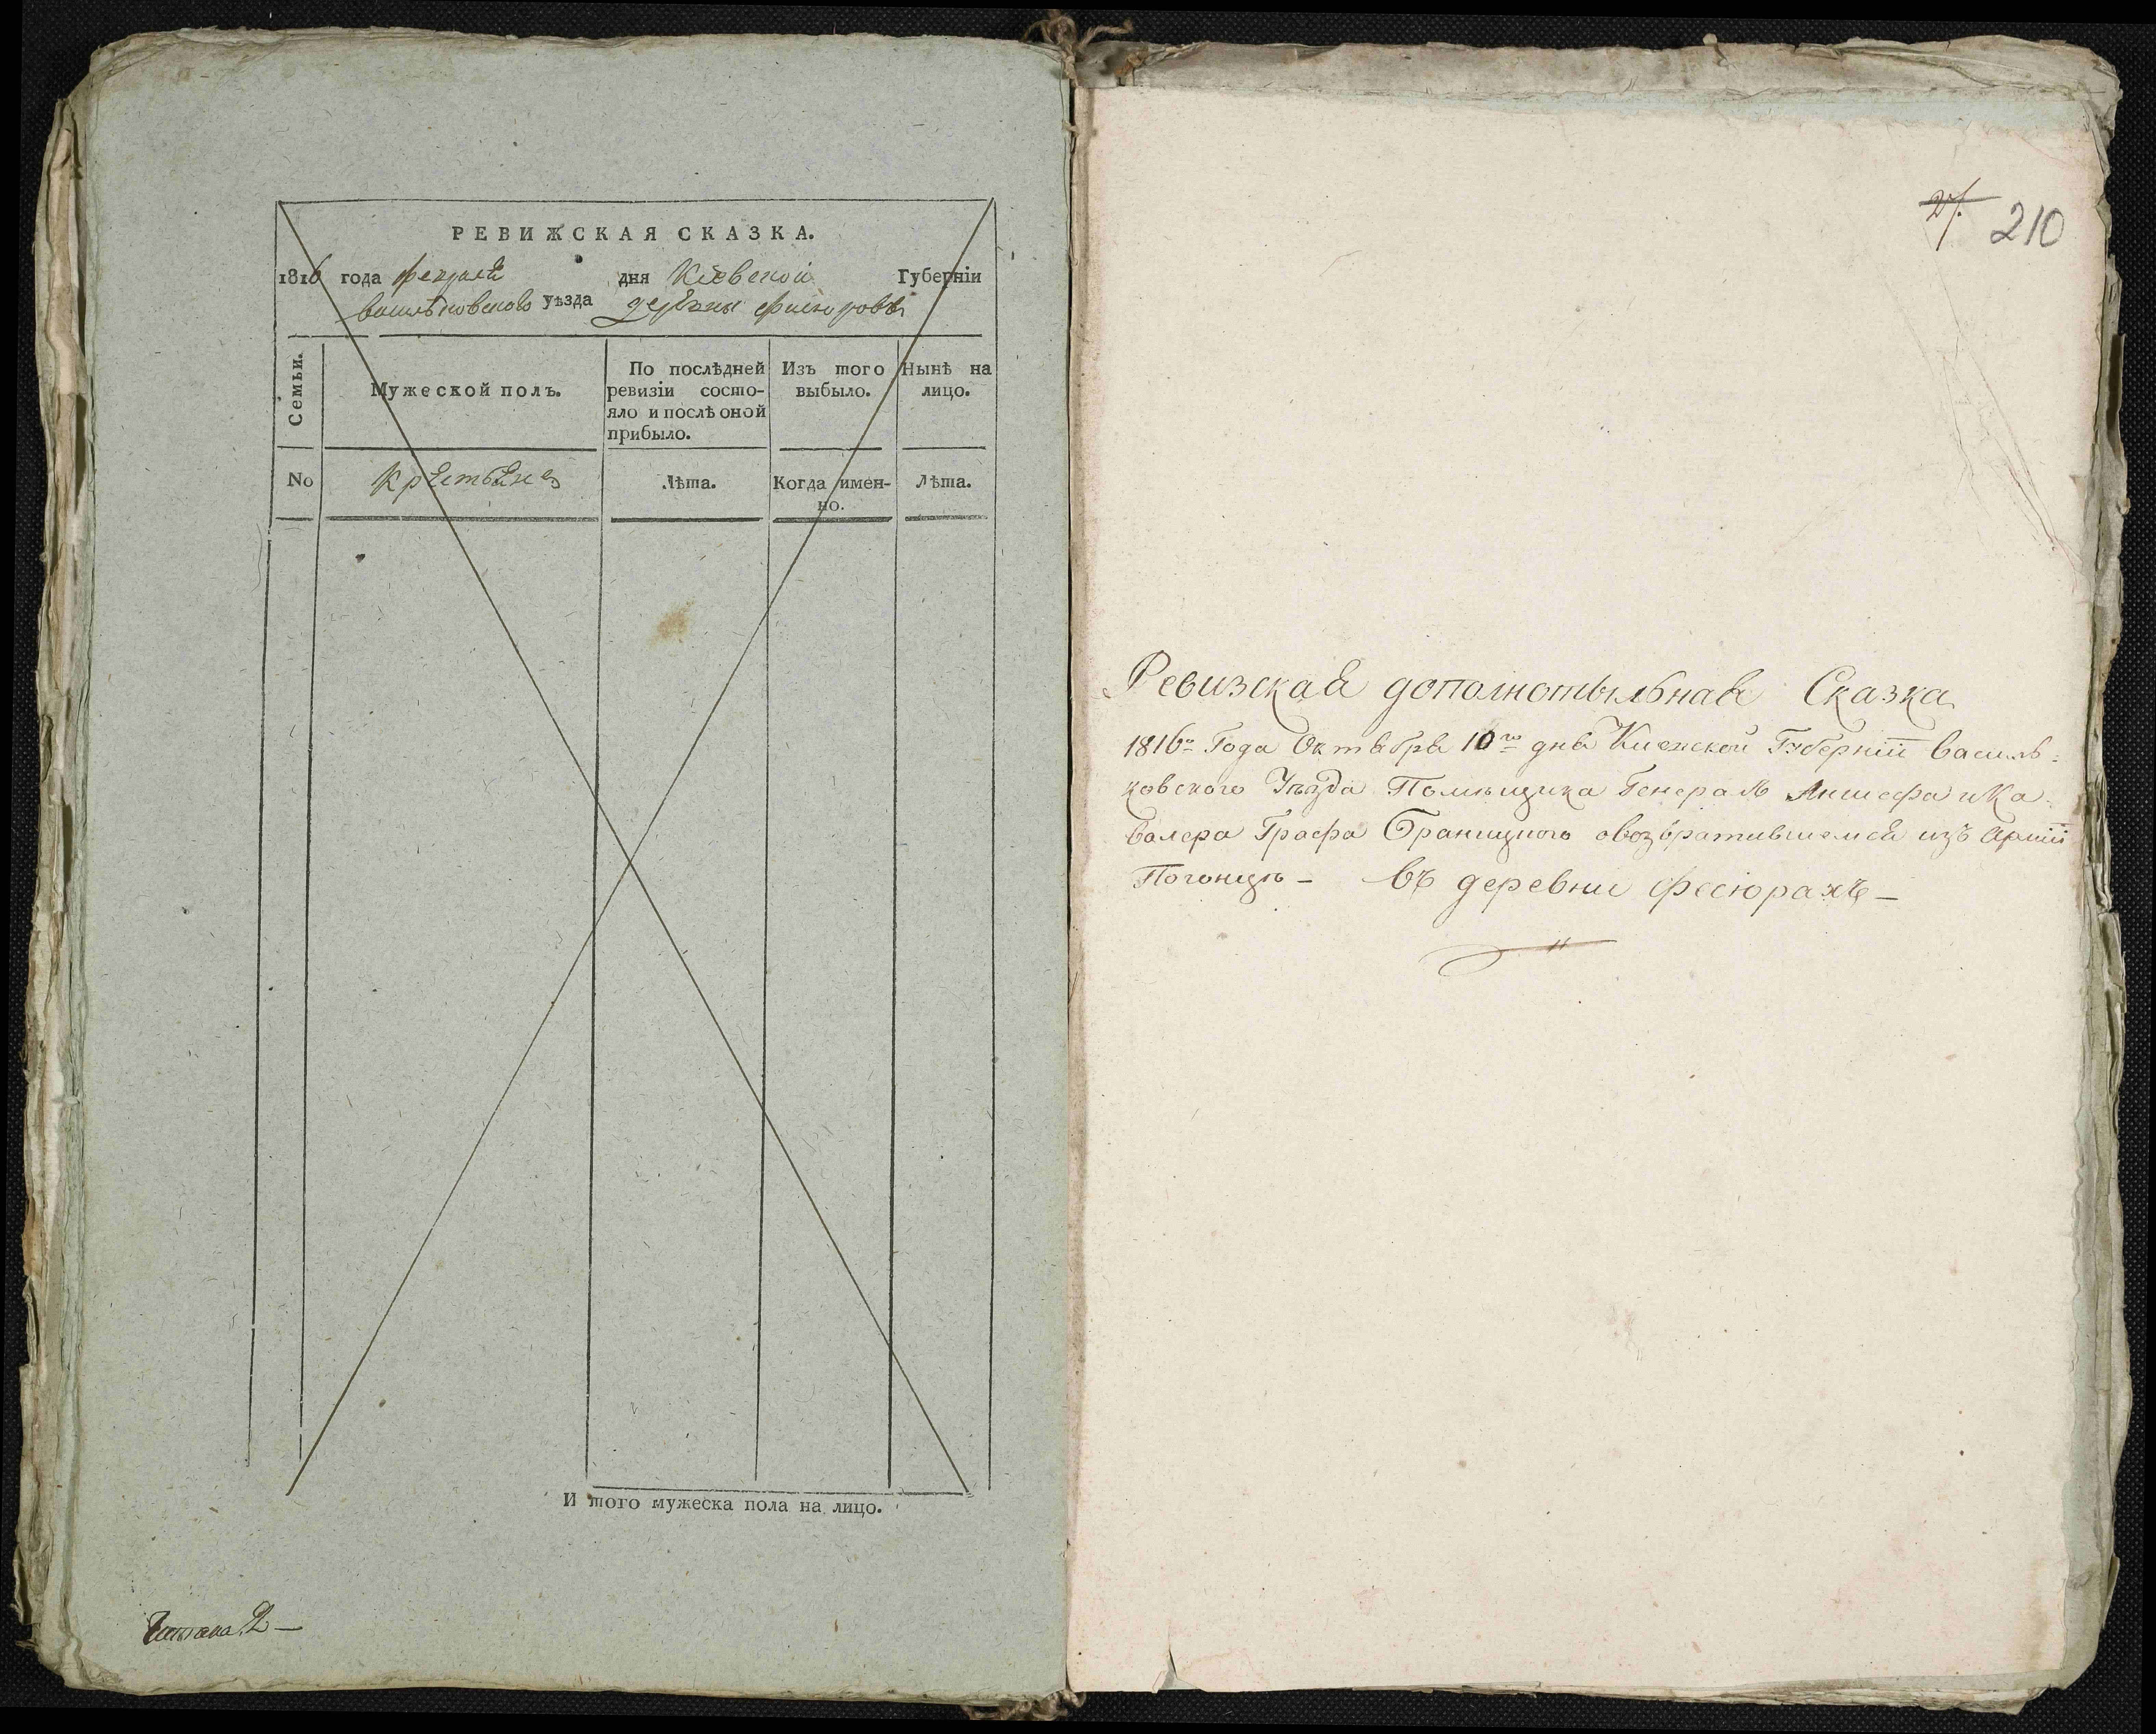 РЕВИЖСКАЯ СКАЗКА.
1816 года февраля дня Кіевской Губерніи
васильковского уѣзда деревни фесюровъ
Семьи.
Мужеской полъ.
По послѣдней ревизіи состо-
яло и послѣ оной
прибыло.
Изъ того
выбыло.
Нынѣ на
лицо.
No
Крестьяне
Лѣта.
Когда имен-
но.
Лѣта.
И того мужеска пола на лицо.
27.
210
Ревизская дополнотыльная Сказка
1816го Года Октября 10го дня Киевской Губерніи Василь=
ковского Уѣзда Помѣщика Генералъ Аншефа и Ка=
валера Графа Браницкого овозвратившемся изъ Арміи
Погонцѣ — въ деревни фесюрахъ —